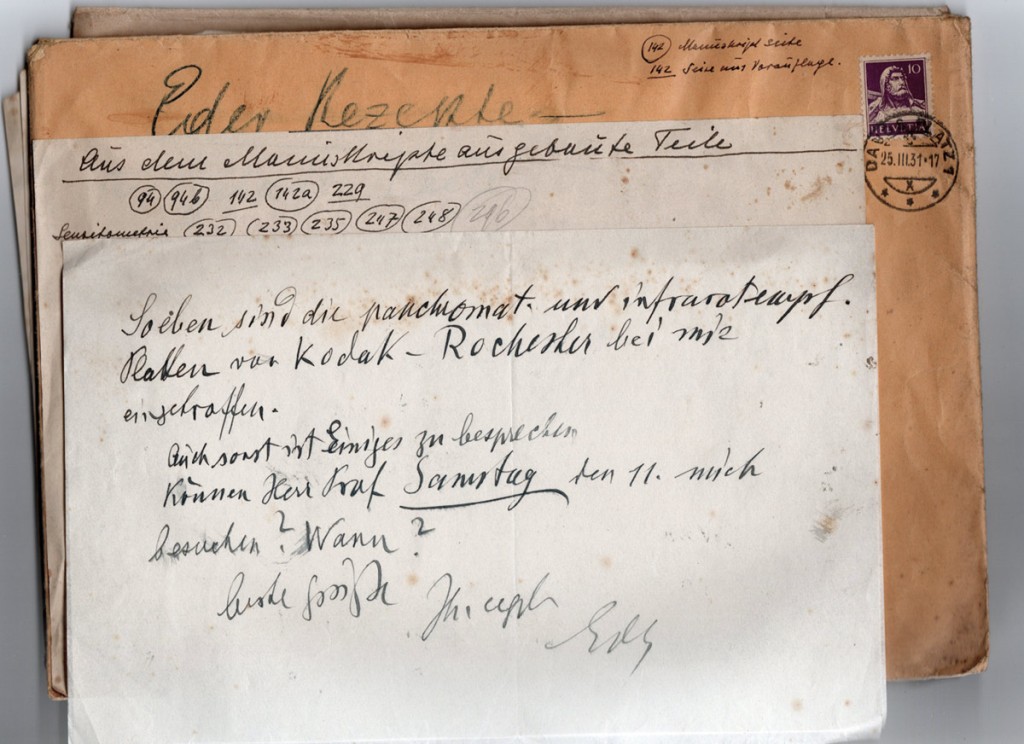 (142) Manuskript Seite
142 Seite aus Vorauflage.
Eder Rezepte —
10
HELVETIA
25.III.31·17
Aus dem Manuskripte ausgebaute Teile
(94) (94b) 142 (142a) 229
Sensitometrie (232) (233) (235) (247) (248) (246)
Soeben sind die panchromat. und infrarotempf.
Platten von Kodak – Rochester bei mir
eingetroffen.
Auch sonst ist Einiges zu besprechen
Können Herr Prof Samstag den 11. mich
besuchen? Wann?
beste Grüße
Eder